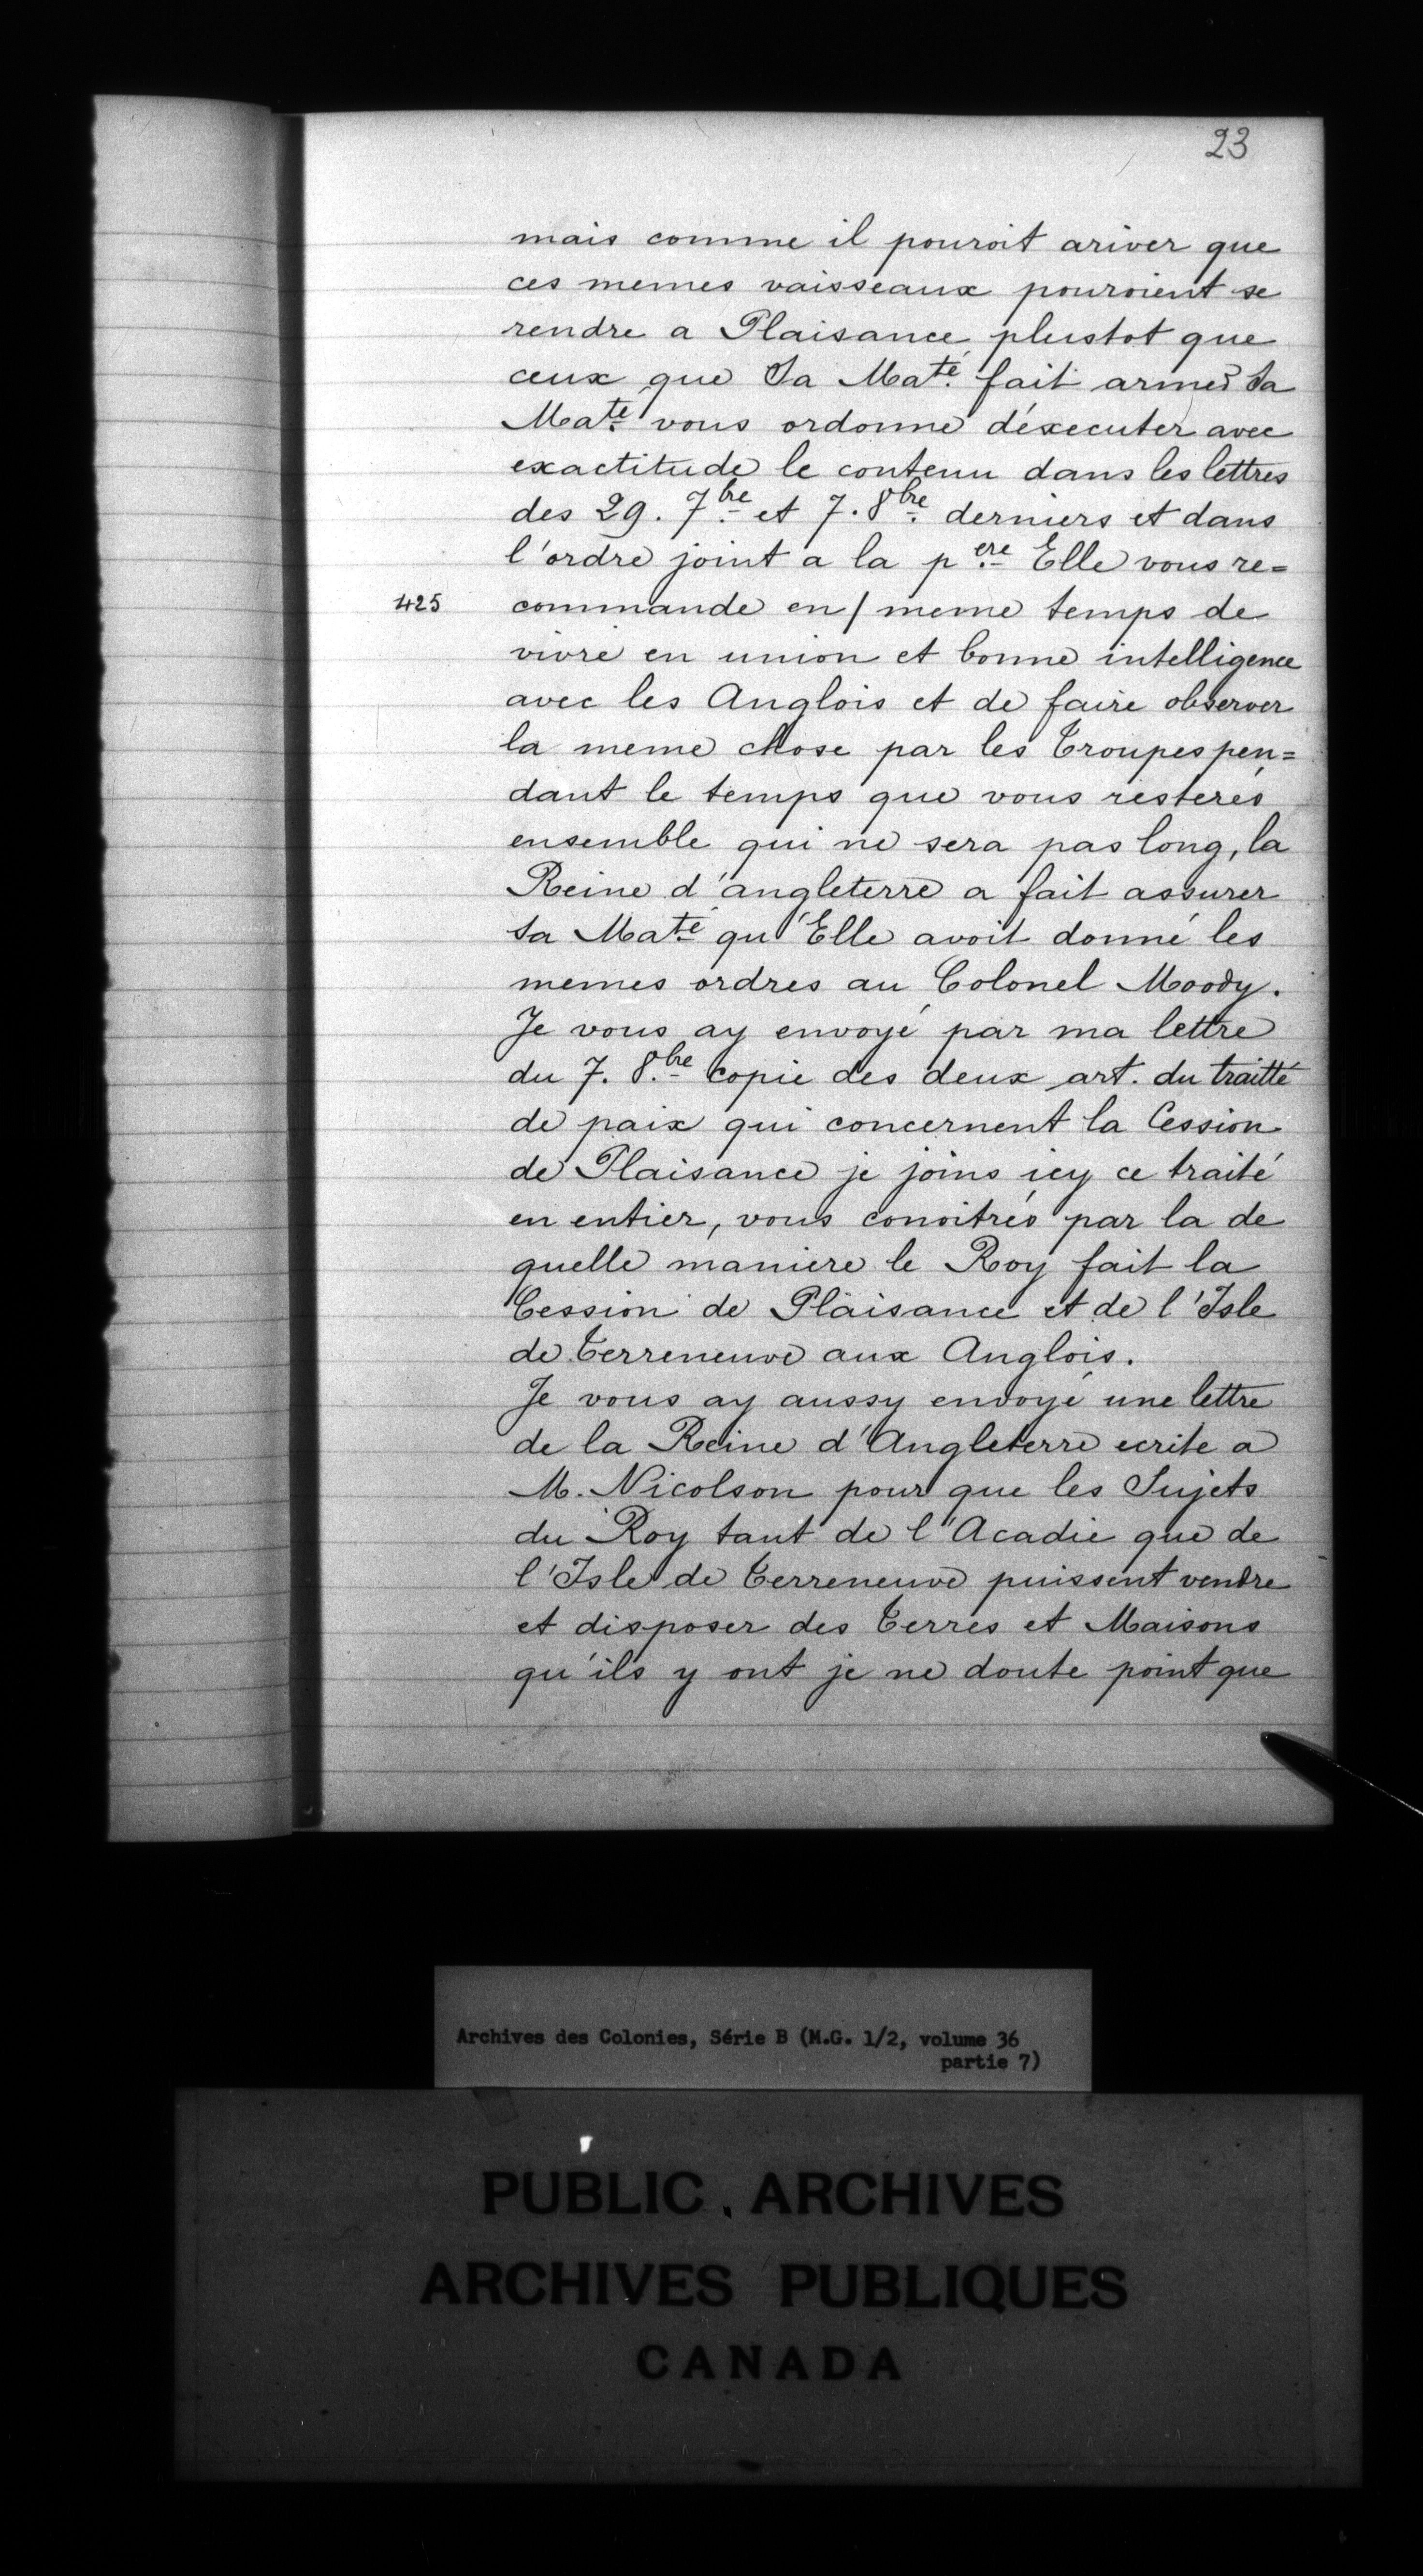 23
mais comme il pouroit ariver que
ces memes vaisseaux pouroient se
rendre a Plaisance plustot que
ceux que Sa Maté. fait armer Sa
Maté. vous ordonne déxecuter avec
exactitude le contenu dans les lettres
des 29. 7bre. et 7. 8bre. derniers et dans
l'ordre joint a la pere. Elle vous re=
425 commande en/meme temps de
vivre en union et bonne intelligence
avec les Anglois et de faire observer
la meme chose par les Troupes pen=
dant le temps que vous resterés
ensemble qui ne sera pas long, la
Reine d'angleterre a fait assurer
Sa Maté qu'Elle avoit donné les
memes ordres au Colonel Moody.
Je vous ay envoyé par ma lettre
du 7. 8.bre copie des deux art. du traitté
de paix qui concernent la Cession
de Plaisance je joins icy ce traité
en entier, vous conoitrés par la de
quelle maniere le Roy fait la
Cession de Plaisance et de l'Isle
de Terreneuve aux Anglois.
Je vous ay aussy envoyé une lettre
de la Reine d'Angleterre ecrite a
M. Nicolson pour que les Sujets
du Roy tant de l'Acadie que de
l'Isle de Terreneuve puissent vendre
et disposer des Terres et Maisons
qu'ils y ont je ne doute point que
Archives des Colonies, Série B (M.G. 1/2, volume 36
partie 7)
PUBLIC ARCHIVES
ARCHIVES PUBLIQUES
CANADA